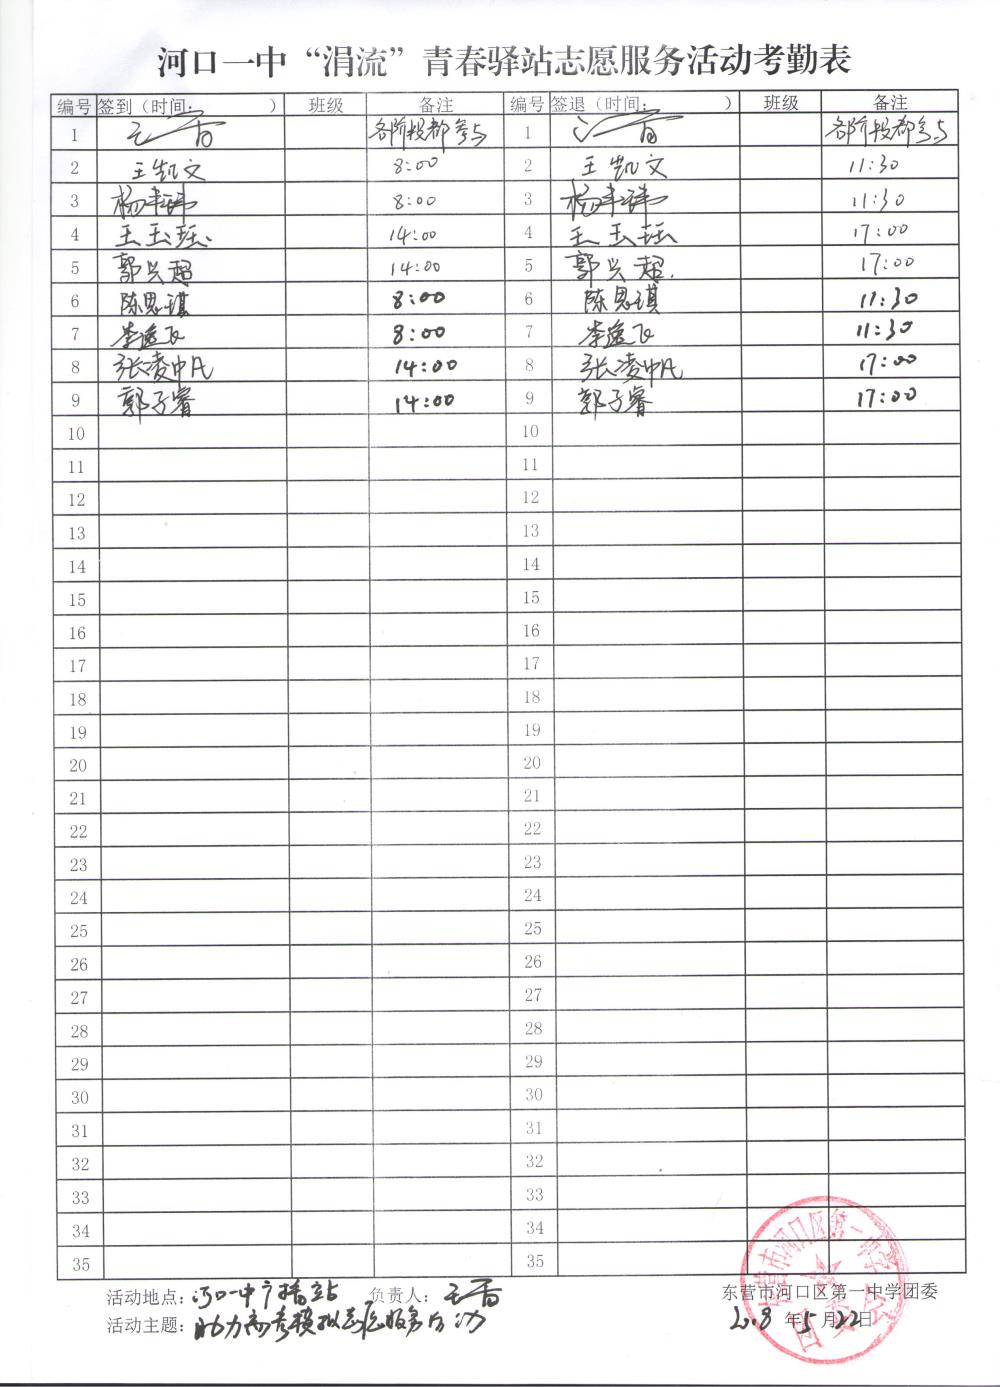 河口一中“涓流”青春驿站志愿服务活动考勤表
编号 签到（时间： ） 班级 备注 编号 签退（时间： ） 班级 备注
1 各阶段都参与 1 各阶段都参与
2 王凯文 8:00 2 王凯文 11:30
3 杨 8:00 3 杨 11:30
4 王玉 14:00 4 王玉 17:00
5 郭兴超 14:00 5 郭兴超. 17:00
6 陈思琪 8:00 6 陈思琪 11:30
7 李逸飞 8:00 7 李逸飞 11:30
8 张凌 14:00 8 张凌 17:00
9 郭子睿 14:00 9 郭子睿 17:00
10 10
11 11
12 12
13 13
14 14
15 15
16 16
17 17
18 18
19 19
20 20
21 21
22 22
23 23
24 24
25 25
26 26
27 27
28 28
29 29
30 30
31 31
32 32
33 33
34 34
35 35
活动地点：河口一中广播站 负责人： 东营市河口区第一中学团委
活动主题：助力高考模拟志愿服务活动 年5月22日
东营市河口区第一中学